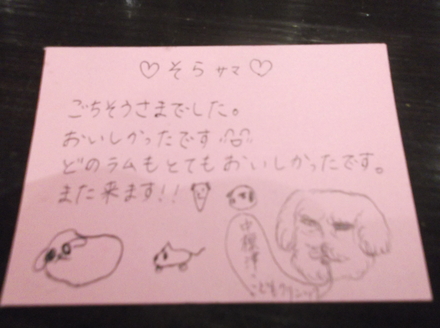 ♡そらサマ♡
ごちそうさまでした。
おいしかったです
どのラムもとてもおいしかったです。
また来ます!!